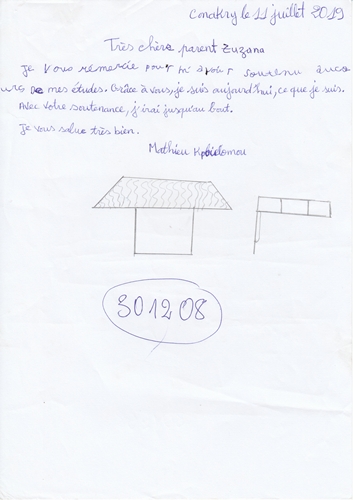 Conakry le 11 juillet 2019
Très chère parent Zuzana
Je vous remercie pour m'avoir soutenu au cou
urs de mes études. Grâce à vous, je suis aujourd'hui, ce que je suis.
Avec votre soutenance, j'irai jusqu'au bout.
Je vous salue très bien.
Mathieu
301208